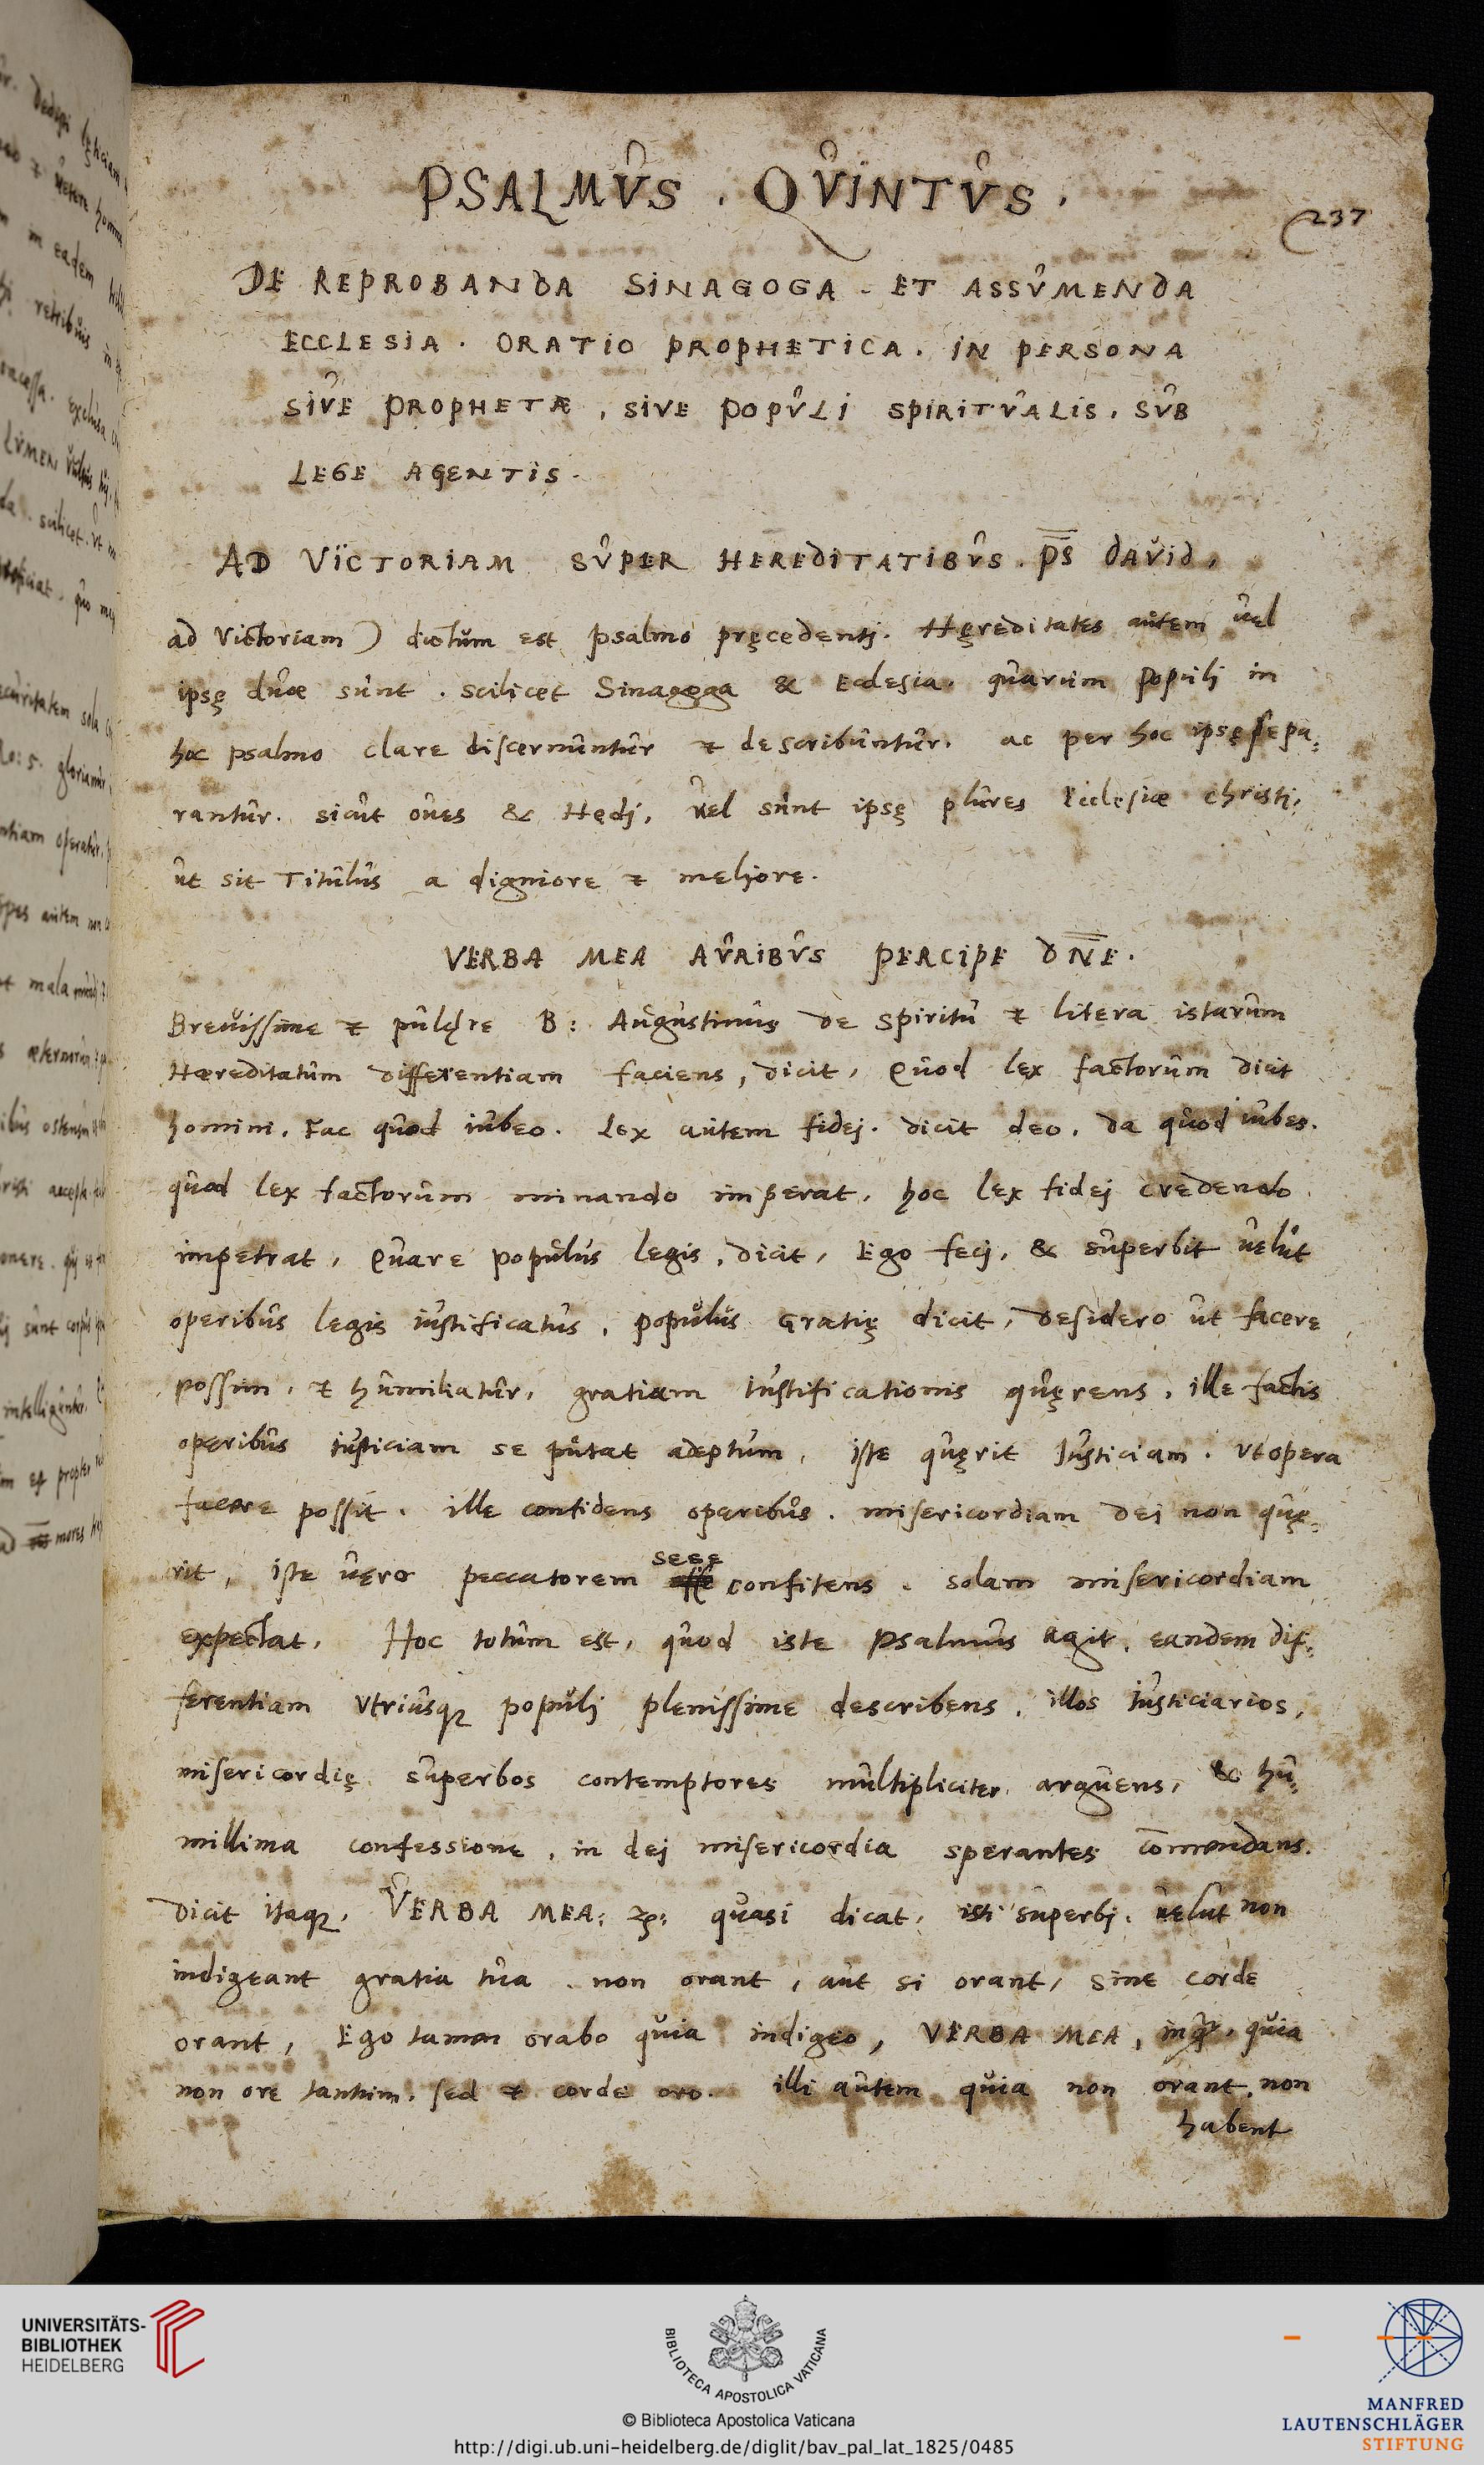 PSALMVS . QVINTVS .
237
DE REPROBANDA SINAGOGA . ET ASSVMENDA
ECCLESIA . ORATIO PROPHETICA . IN PERSONA
SIVE PROPHETÆ , SIVE POPVLI SPIRITVALIS . SVB
LEGE AGENTIS .
AD VICTORIAM SVPER HEREDITATIBVS . P̄S DAVID .
ad Victoriam ) dictum est psalmo pręcedentj . Hęreditates autem vel
ipsę duæ sunt . scilicet Sinagoga & Ecclesia . quarum populi in
hoc psalmo clare discernuntur & describuntur . ac per hoc ipsę sepa⸗
rantur . sicut oues & Hędj , vel sunt ipsę plures Ecclesiæ christi ,
ut sit Titulus a digniore & meliore .
VERBA MEA AVRIBVS PERCIPE DN̄E .
Breuissime & pulchre B : Augustinus de Spiritu & litera istarum
Hæreditatum differentiam faciens , dicit , Quod lex factorum dicit
homini , Fac quod iubeo . Lex autem fidej . dicit deo , da quod iubes .
quod lex factorum minando imperat , hoc lex fidej credendo
impetrat , Quare populus legis , dicit , Ego fecj , & superbit velut
operibus legis iustificatus , populus Gratię dicit , desidero ut facere
possim , & humiliatur , gratiam iustificationis quęrens , ille factis
operibus iusticiam se putat adeptum , iste quęrit Iusticiam . Vt opera
facere possit . ille confidens operibus . misericordiam dei non quę⸗
rit , iste vero peccatorem sese confitens . solam misericordiam
expectat . Hoc totum est , quod iste Psalmus agit , eandem dif⸗
ferentiam Vtriusqꝫ populj plenissime describens . illos Iusticiarios ,
misericordię superbos contemptores multipliciter arguens , & hu⸗
millima confessione , in dej misericordia sperantes com̄endans .
dicit itaqꝫ , VERBA MEA : ꝛc : quasi dicat , isti superbj . velut non
indigeant gratia tua . non orant , aut si orant , sine corde
orant , Ego tamen orabo quia indigeo , VERBA MEA , inqͬ , quia
non ore tantum . sed & corde oro . illi autem quia non orant , non
habent
UNIVERSITÄTS-
BIBLIOTHEK
HEIDELBERG
BIBLIOTECA APOSTOLICA VATICANA
© Biblioteca Apostolica Vaticana
http://digi.ub.uni-heidelberg.de/diglit/bav_pal_lat_1825/0485
MANFRED
LAUTENSCHLÄGER
STIFTUNG